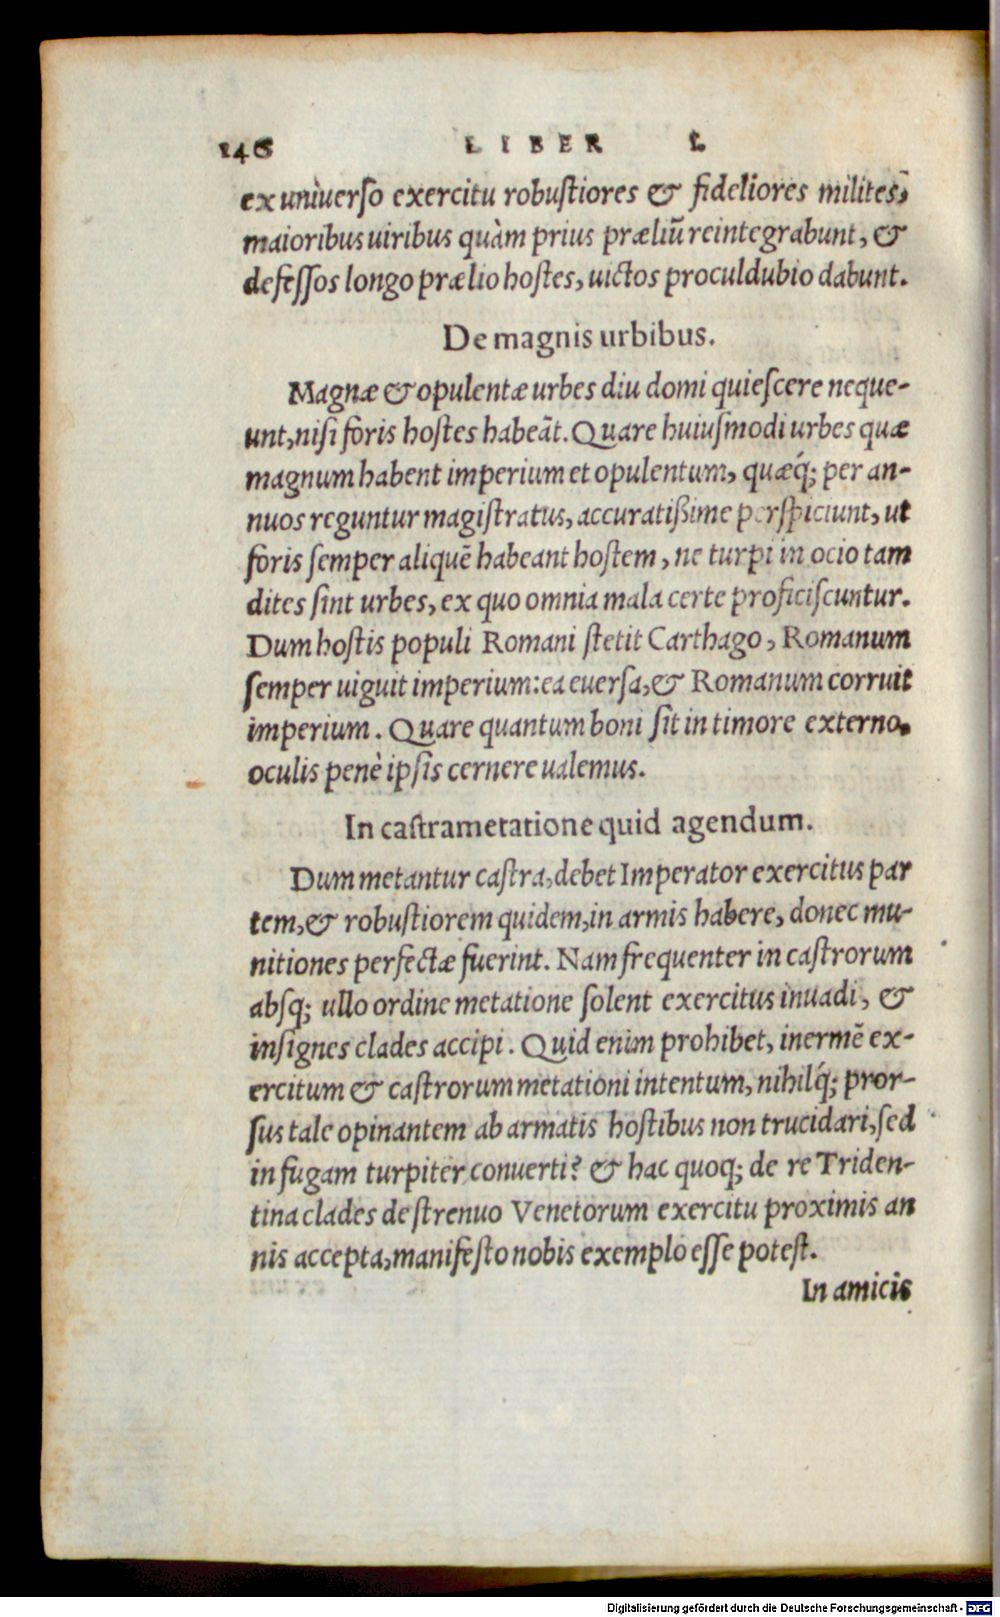 146 LIBER I.
ex uniuerso exercitu robustiores & fideliores milites,
maioribus uiribus quàm prius præliũ reintegrabunt, &
defessos longo prælio hostes, uictos proculdubio dabunt.
De magnis urbibus.
Magnæ & opulentæ urbes diu domi quiescere neque-
unt, nisi foris hostes habeãt. Quare huiusmodi urbes quæ
magnum habent imperium et opulentum, quæq́; per an-
nuos reguntur magistratus, accuratißime perspiciunt, ut
foris semper aliquẽ habeant hostem, ne turpi in ocio tam
dites sint urbes, ex quo omnia mala certe proficiscuntur.
Dum hostis populi Romani stetit Carthago, Romanum
semper uiguit imperium: ea euersa, & Romanum corruit
imperium. Quare quantum boni sit in timore externo,
oculis penè ipsis cernere ualemus.
In castrametatione quid agendum.
Dum metantur castra, debet Imperator exercitus par
tem, & robustiorem quidem, in armis habere, donec mu-
nitiones perfectæ fuerint. Nam frequenter in castrorum
absq; ullo ordine metatione solent exercitus inuadi, &
insignes clades accipi. Quid enim prohibet, inermẽ ex-
ercitum & castrorum metationi intentum, nihilq́; pror-
sus tale opinantem ab armatis hostibus non trucidari, sed
in fugam turpiter conuerti? & hac quoq; de re Triden-
tina clades de strenuo Venetorum exercitu proximis an
nis accepta, manifesto nobis exemplo esse potest.
In amicis
Digitalisierung gefördert durch die Deutsche Forschungsgemeinschaft - DFG